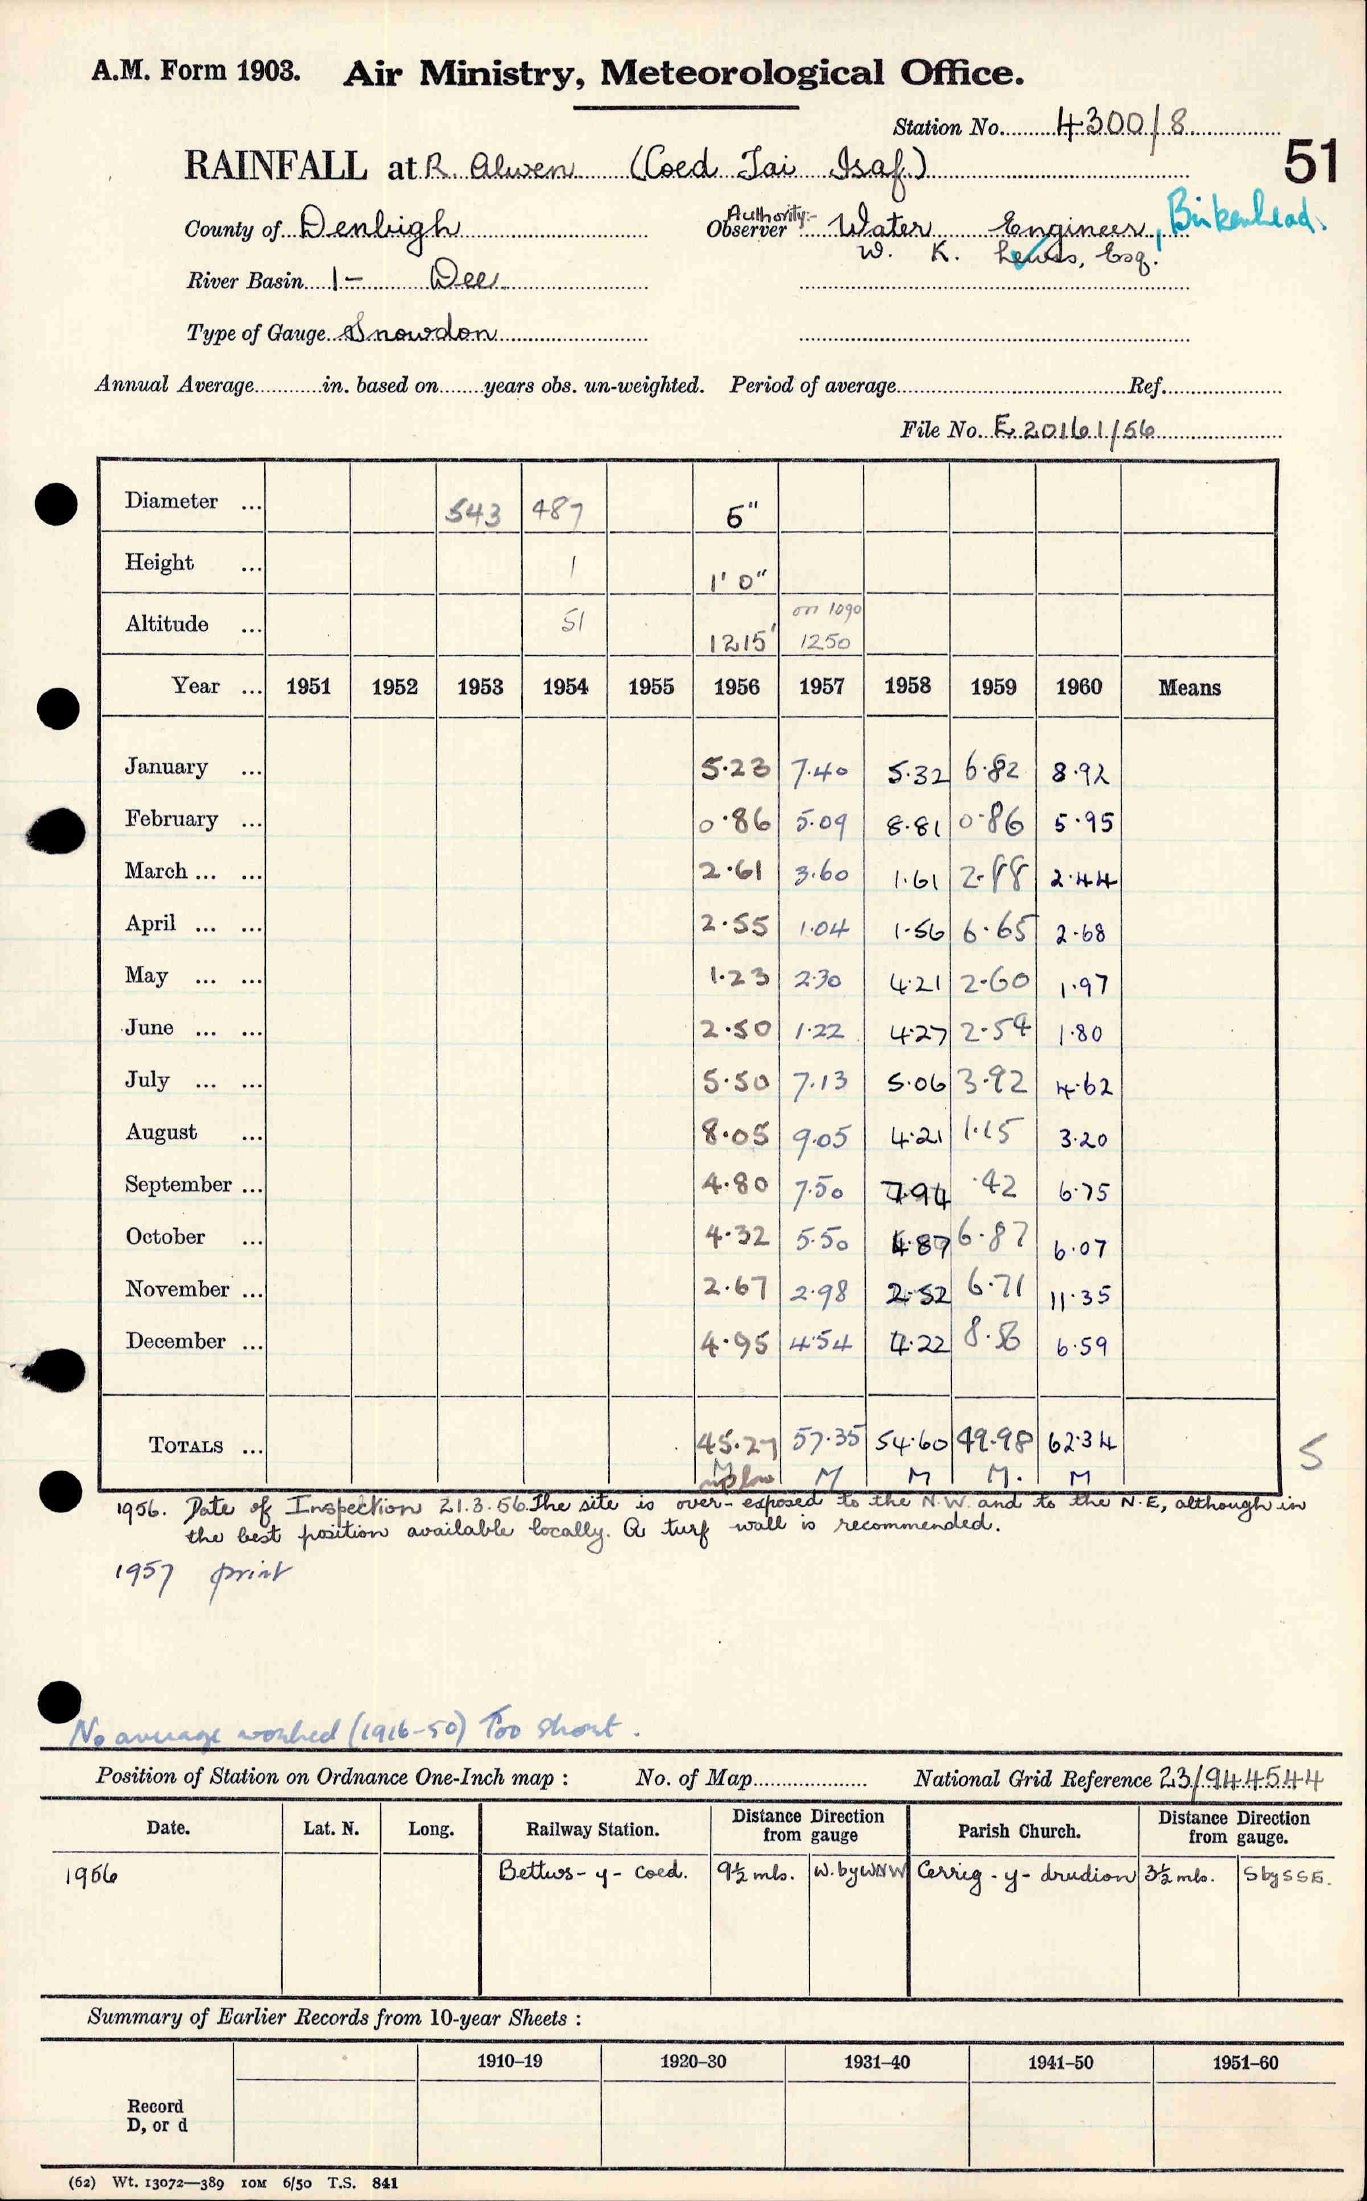 A.M. Form 1903. Air Ministry, Meteorological Office.
Station No. 4300/8
51
RAINFALL at R. Alwen (Coed Tai Isaf)
County of Denbigh
Authority:-
Observer Water Engineer, Birkenhead.
W. K. Lewis, Esq.
River Basin 1- Dee
Type of Gauge Snowdon
Annual Average in. based on years obs. un-weighted. Period of average Ref.
File No. E 20161/56
Diameter ... 543 487 5"
Height ... 1 1' 0"
Altitude ... 51 1215' on 1090 1250
Year ... 1951 1952 1953 1954 1955 1956 1957 1958 1959 1960 Means
January ... 5.23 7.40 5.32 6.82 8.92
February ... 0.86 5.09 8.81 0.86 5.95
March ... ... 2.61 3.60 1.61 2.88 2.44
April ... ... 2.55 1.04 1.56 6.65 2.68
May ... ... 1.23 2.30 4.21 2.60 1.97
June ... ... 2.50 1.22 4.27 2.54 1.80
July ... ... 5.50 7.13 5.06 3.92 4.62
August ... 8.05 9.05 4.21 1.15 3.20
September ... 4.80 7.50 7.94 .42 6.75
October ... 4.32 5.50 4.87 6.87 6.07
November ... 2.67 2.98 2.52 6.71 11.35
December ... 4.95 4.54 4.22 8.56 6.59
TOTALS ... 45.27 57.35 54.60 49.98 62.34
M M M M. M
S
1956. Date of Inspection 21.3.56. The site is over-exposed to the N.W. and to the N.E, although in
the best position available locally. A turf wall is recommended.
1957 print
No average worked (1916-50) Too short.
Position of Station on Ordnance One-Inch map : No. of Map National Grid Reference 23/944544
Date. Lat. N. Long. Railway Station. Distance Direction from gauge Parish Church. Distance Direction from gauge.
1956 Bettws-y-coed. 9½ mls. W. by WNW Cerrig-y-drudion 3½ mls. S by SSE.
Summary of Earlier Records from 10-year Sheets :
1910–19 1920–30 1931–40 1941–50 1951–60
Record
D, or d
(62) Wt. 13072—389 10M 6/50 T.S. 841